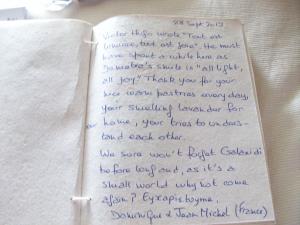 28 Sept 2013
Victor Hugo wrote "Tout est
lumière, tout est joie". He must
have spent a while here as
's smile is "all light,
all joy". Thank you for your
warm pastries every day,
your smelling lavander for
home, your tries to unders-
tand each other.
We sure won't forget Galaxidi
before long and, as it's a
small world why not come
again? Eyxapictoyme,
Dominique & Jean Michel (France)